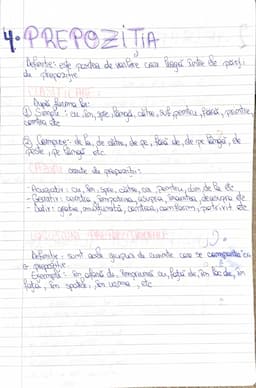 4. PREPOZIȚIA
Definiție: este partea de vorbire care leagă între ele părți
de propoziție
CLASIFICARE:
După forma lor:
① Simple: cu, în, spre, lângă, către, sub, pentru, fără, printre,
contra etc
② Compuse: de la, de către, de pe, fără de, de pe lângă, de
peste, pe lângă etc
CAZURI cerute de prepoziții:
- Acuzativ: cu, în, spre, către, cu, pentru, din, de la etc
- Genitiv: contra, împotriva, asupra, înaintea, deasupra etc
- Dativ: grație, mulțumită, contrar, conform, potrivit etc
LOCUȚIUNI PREPOZIȚIONALE
Definiție: sunt acele grupuri de cuvinte care se comportă ca
o prepoziție
Exemple: în afară de, împreună cu, față de, în loc de, în
fața, în spatele, în urma, etc